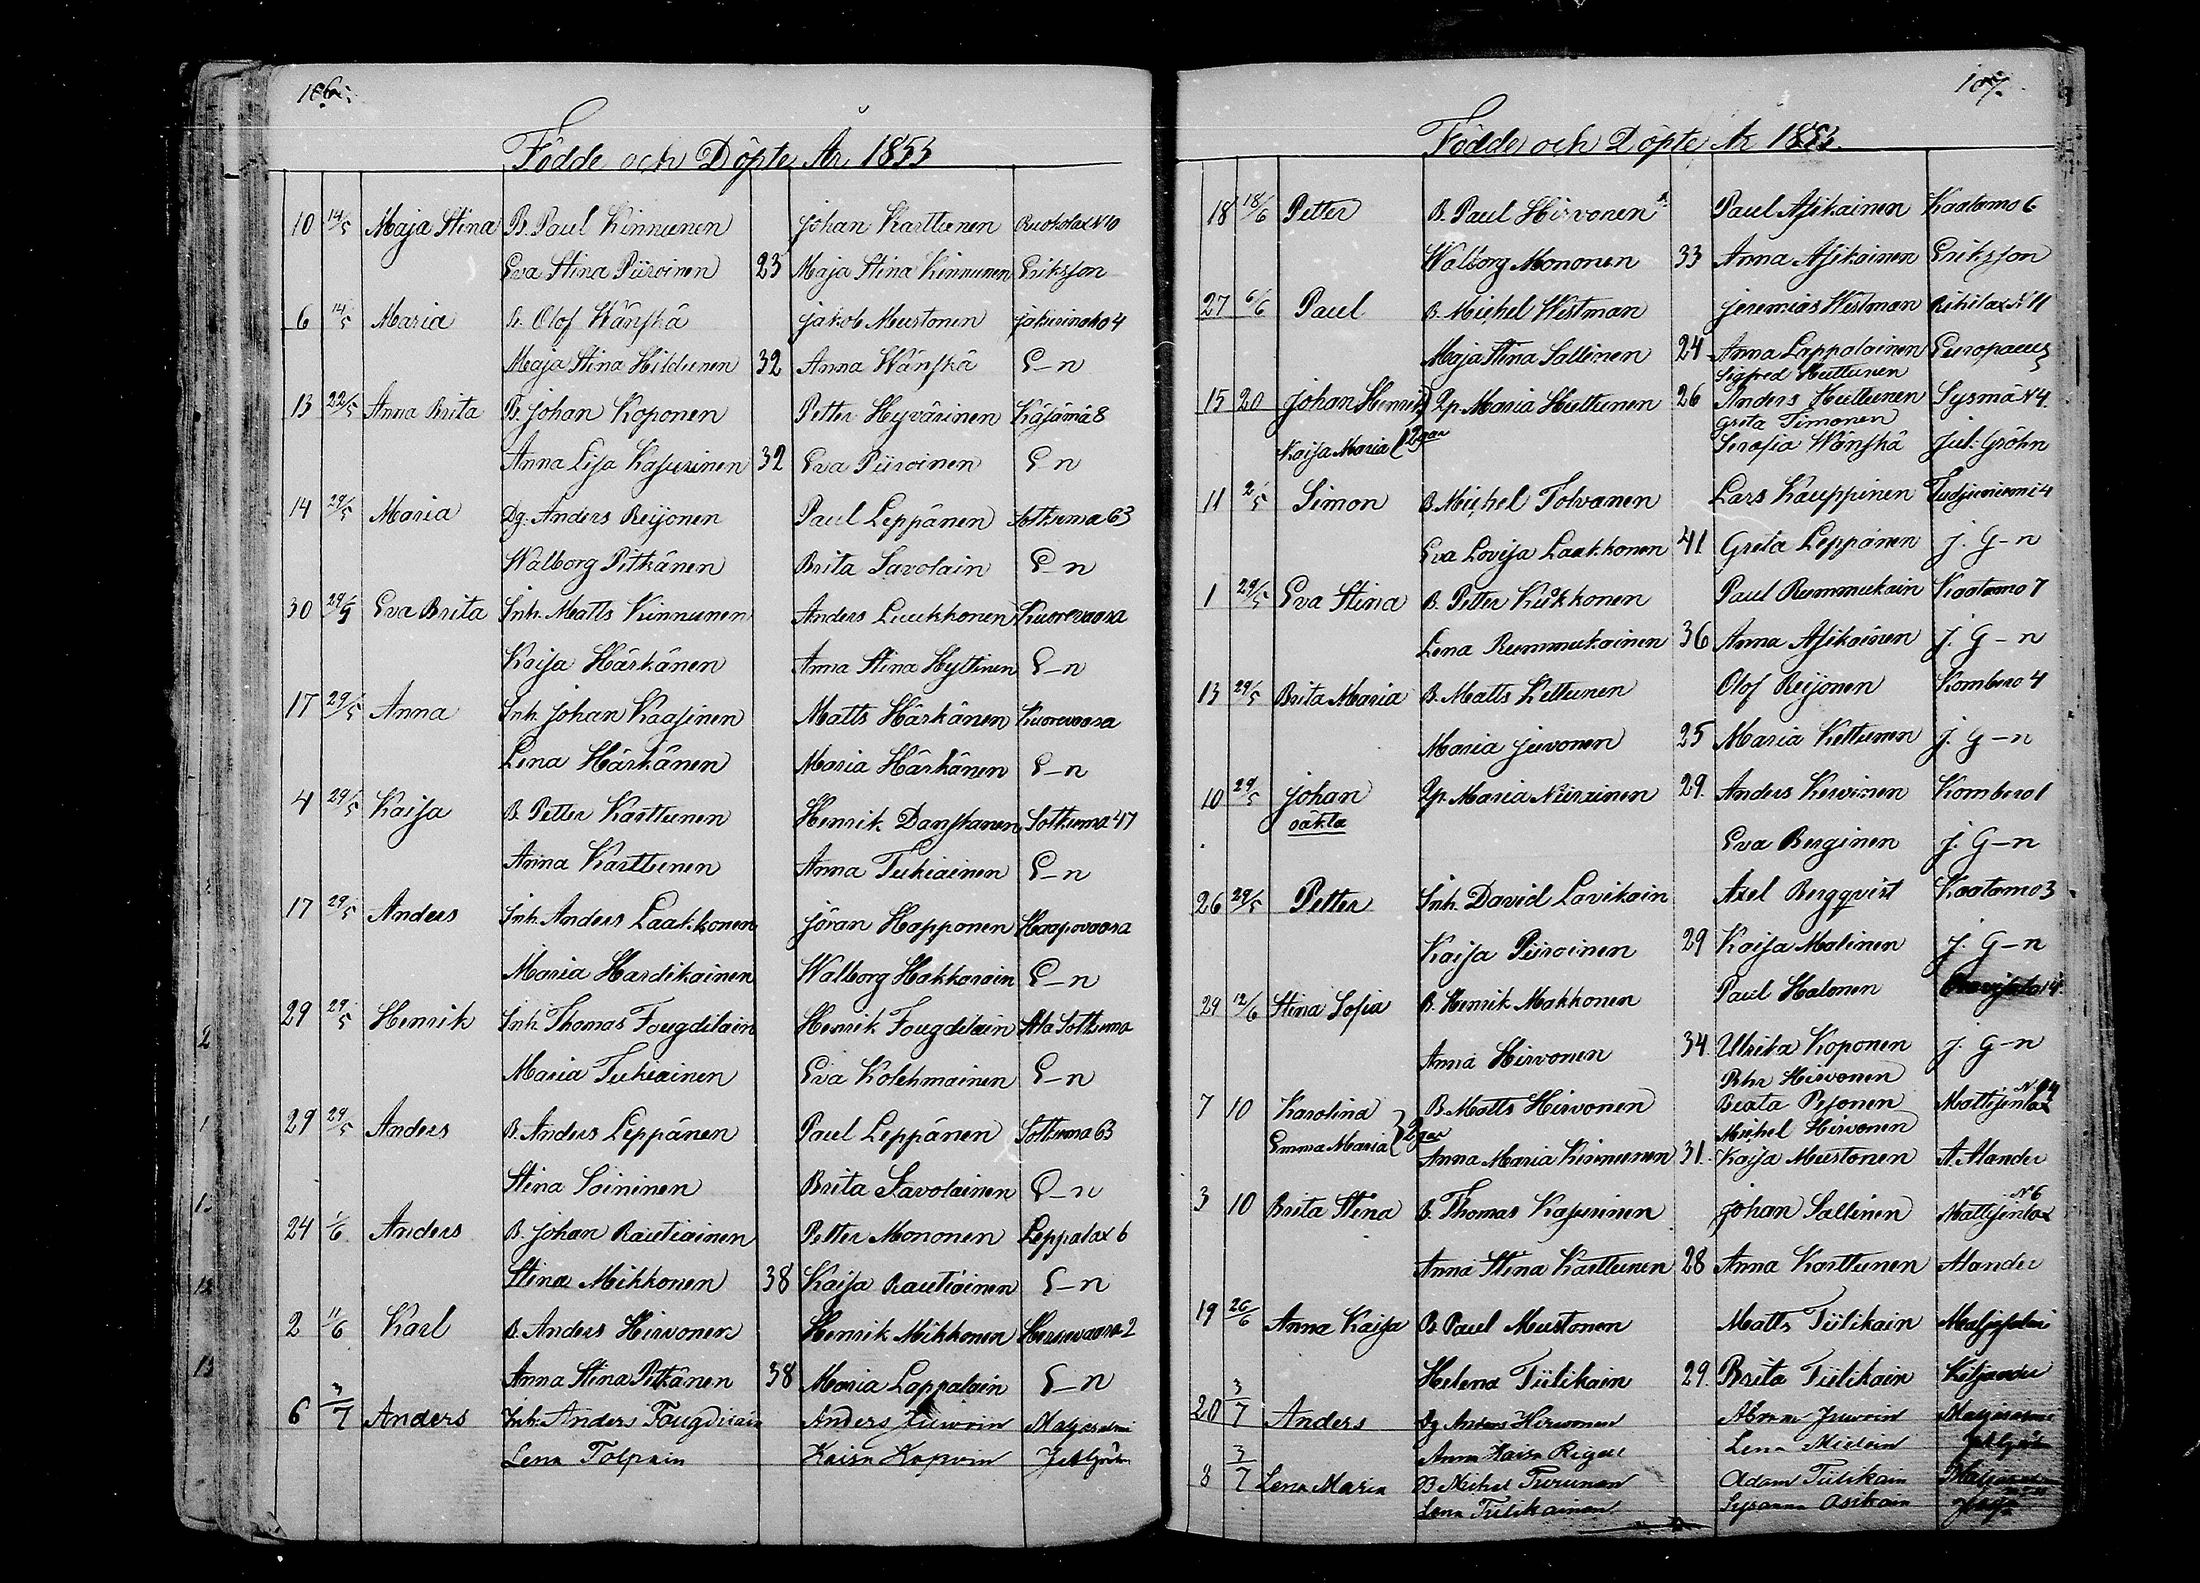 106.
Födde och Döpte År 1853
10 14/5 Maja Stina B. Paul Kinnunen Johan Karttunen Ruokolax N10
Eva Stina Piiroinen 23 Maja Stina Kinnunen Eriksson
6 14/5 Maria B. Olof Wänskä Jakob Mustonen 4
Maja Stina Hildunen 32 Anna Wänskä E-n
13 22/5 Anna Brita B. Johan Koponen Petter Hyvärinen Käsämä 8
Anna Lisa Kasurinen 32 Eva Piiroinen E-n
14 29/5 Maria Dg. Anders Reijonen Paul Leppänen Sotkuma 63
Walborg Pitkänen Brita Savolain E-n
30 29/5 Eva Brita Inh. Matts Kinnunen Anders Luukkonen Kuorevaara
Kaisa Härkänen Anna Stina Hyttinen E-n
17 29/5 Anna Inh. Johan Kaasinen Matts Härkänen Kuorevaara
Lena Härkänen Maria Härkänen E-n
4 29/5 Kaisa B. Petter Karttunen Henrik Danskanen Sotkuma 47
Anna Karttunen Anna Tukiainen E-n
17 29/5 Anders Inh. Anders Laakkonen Jöran Happonen Haapovaara
Maria Hardikainen Walborg Hakkarain E-n
29 29/5 Henrik Inh. Thomas Fougdilain Henrik Fougdilain Ala Sotkuma
Maria Tukiainen Eva Kolehmainen E-n
29 29/5 Anders B. Anders Leppänen Paul Leppänen Sotkuma 63
Stina Soininen Brita Savolainen E-n
24 1/6 Anders B. Johan Rautiainen Petter Mononen Leppälax 6
Stina Mikkonen 38 Kaisa Rautiainen E-n
2 11/6 Karl B. Anders Hirvonen Henrik Mikkonen 2
Anna Stina Pitkänen 38 Maria Lappalain E-n
6 3/7 Anders Inh. Anders Fougdilain Anders Juvoin
Lena Tolpain Kaisa
107.
Födde och Döpte År 1853.
18 18/6 Petter B. Paul Hirvonen Paul Asikainen Kaatamo 6
Walborg Mononen 33 Anna Asikainen Eriksson
27 6/6 Paul B. Michel Westman Jeremias Westman N 11
Maja Stina Sallinen 24 Anna Lappalainen Europaeus
Sigfred Huttunen
15 20 Johan Henrik Qp. Maria Huttunen 26 Anders Huttunen Sysmä N4.
Greta Timonen
Kaisa Maria 2gar Serafia Wänskä Jul. Gröhn
11 2/5 Simon B. Michel Tolvanen Lars Kauppinen 4
Eva Lovisa Laakkonen 41 Greta Leppänen J. G-n
1 29/5 Eva Stina B. Petter Kukkonen Paul Rummukain Kaatamo 7
Lena Rummukainen 36 Anna Asikainen J. G-n
13 29/5 Brita Maria B. Matts Kettunen Olof Reijonen Kombero 4
Maria Juvonen 25 Maria Kettunen J. G-n
10 29/5 Johan Qp. Maria Niiranen 29. Anders Kervinen Kombero 1
oäkta
Eva Berginen J. G-n
26 29/5 Petter Inh. David Lavikain Axel Bergqvist Kaatamo 3
Kaisa Piiroinen 29 Kaisa Malinen J. G-n
29 12/6 Stina Sofia B. Henrik Makkonen Paul Halonen
Anna Hirvonen 34. Ulrika Koponen J. G-n
Petr Hirvonen
7 10 Karolina B. Matts Hirvonen Beata Pesonen Mattisenlax
Michel Hirvonen
Emma Maria 2gar Anna Maria Kinnunen 31. Kaisa Mustonen A. Alander
3 10 Brita Stina B. Thomas Kasurinen Johan Sallinen Mattisenlax N6
Anna Stina Karttunen 28 Anna Karttunen Alander
19 26/6 Anna Kaisa B. Paul Mustonen Matts Tiilikain
Helena Tiilikain 29. Brita Tiilikain Kiljander
20 3/7 Anders Dg Anders Hirvonen Abram Juvoin
Anna Kaisa Lena
8 3/7 Lena Maria B Michel Turunen Adam Tiilikain
Lena Tiilikainen Susanna Asikain